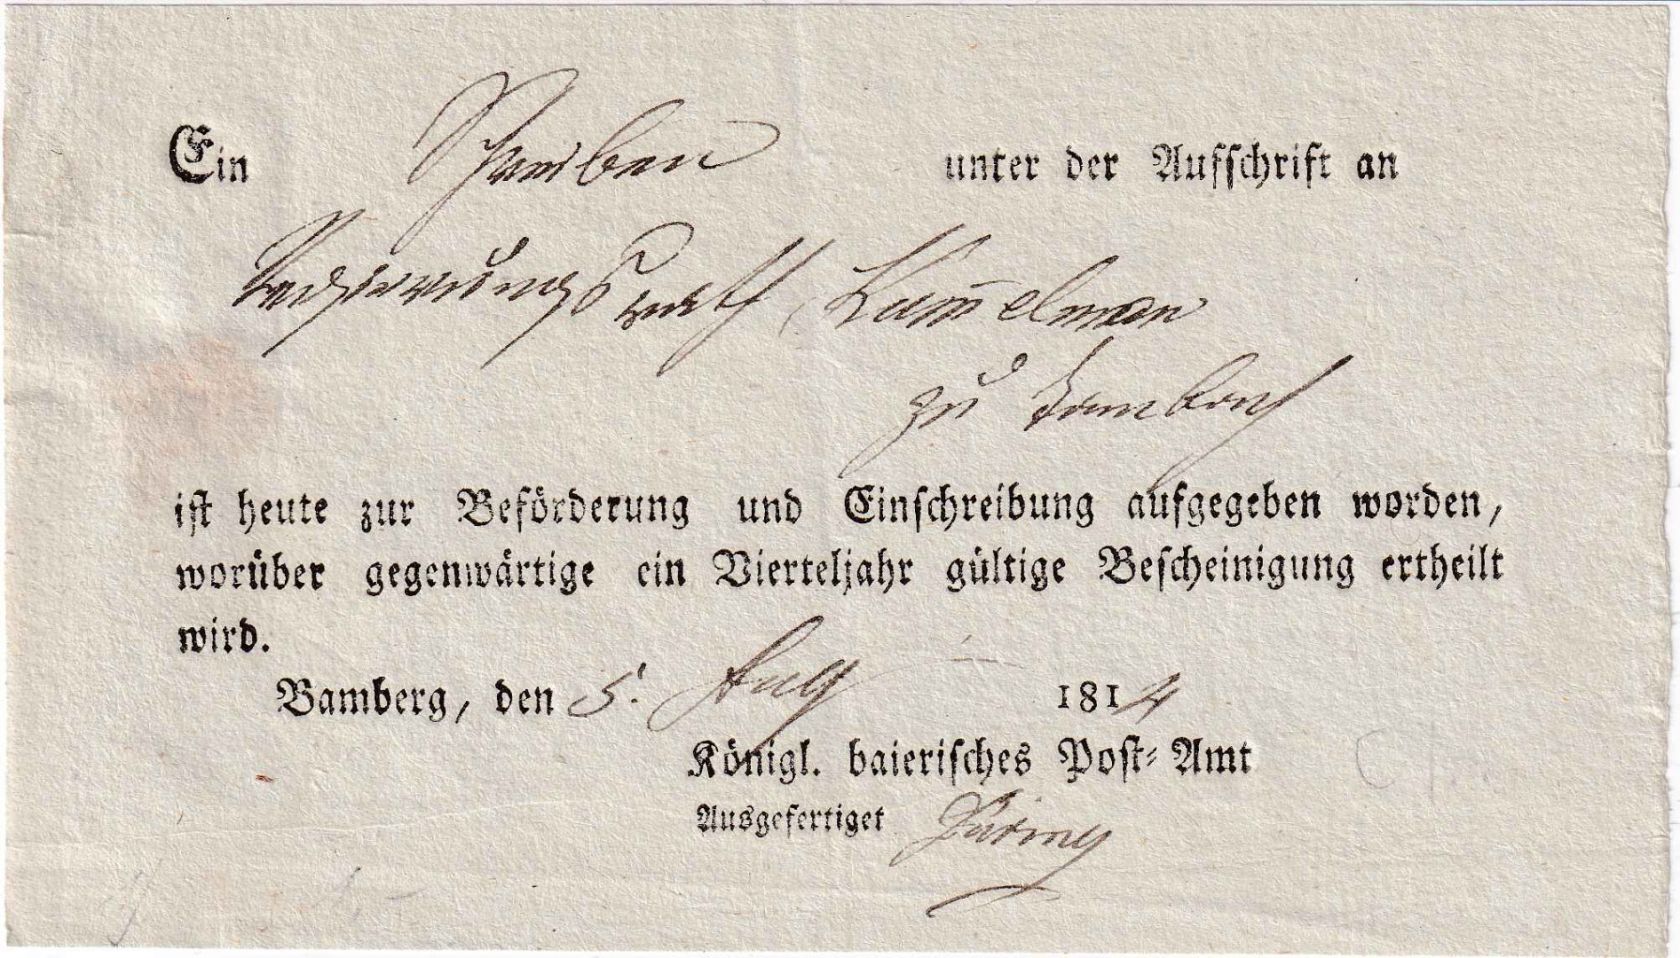 Ein Schreiben unter der Aufschrift an
Regierungs Rath
zu Tambach
ist heute zur Beförderung und Einschreibung aufgegeben worden,
worüber gegenwärtige ein Vierteljahr gültige Bescheinigung ertheilt
wird.
Bamberg, den 5. Aug 1814
Königl. baierisches Post-Amt
Ausgefertiget